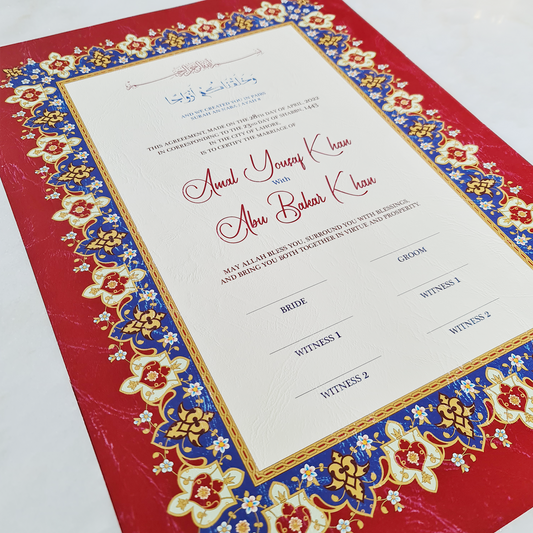 وَخَلَقْنَاكُمْ أَزْوَاجًا
AND WE CREATED YOU IN PAIRS
SURAH AN NABA, AYAH 8
THIS AGREEMENT, MADE ON THE 28th DAY OF APRIL, 2022
IN CORRESPONDING TO THE 25th DAY OF SHABBN, 1443
IN THE CITY OF LAHORE,
IS TO CERTIFY THE MARRIAGE OF
Amal Yousaf Khan
With
Abu Bakar Khan
MAY ALLAH BLESS YOU, SURROUND YOU WITH BLESSINGS,
AND BRING YOU BOTH TOGETHER IN VIRTUE AND PROSPERITY
BRIDE GROOM
WITNESS 1 WITNESS 1
WITNESS 2 WITNESS 2